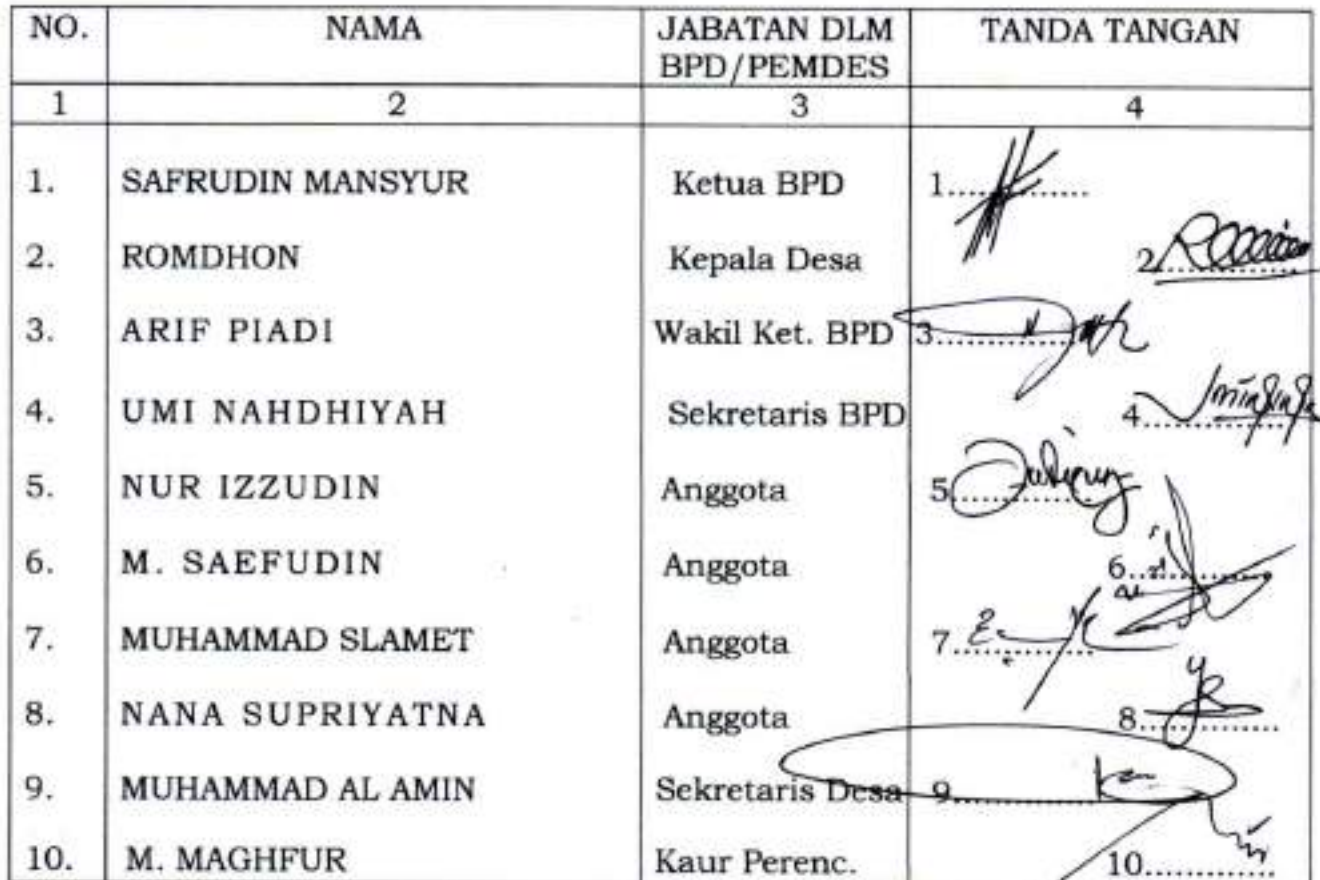 NO. NAMA JABATAN DLM BPD/PEMDES TANDA TANGAN
1 2 3 4
1. SAFRUDIN MANSYUR Ketua BPD 1..............
2. ROMDHON Kepala Desa 2..............
3. ARIF PIADI Wakil Ket. BPD 3..............
4. UMI NAHDHIYAH Sekretaris BPD 4..............
5. NUR IZZUDIN Anggota 5..............
6. M. SAEFUDIN Anggota 6..............
7. MUHAMMAD SLAMET Anggota 7..............
8. NANA SUPRIYATNA Anggota 8..............
9. MUHAMMAD AL AMIN Sekretaris Desa 9..............
10. M. MAGHFUR Kaur Perenc. 10.............